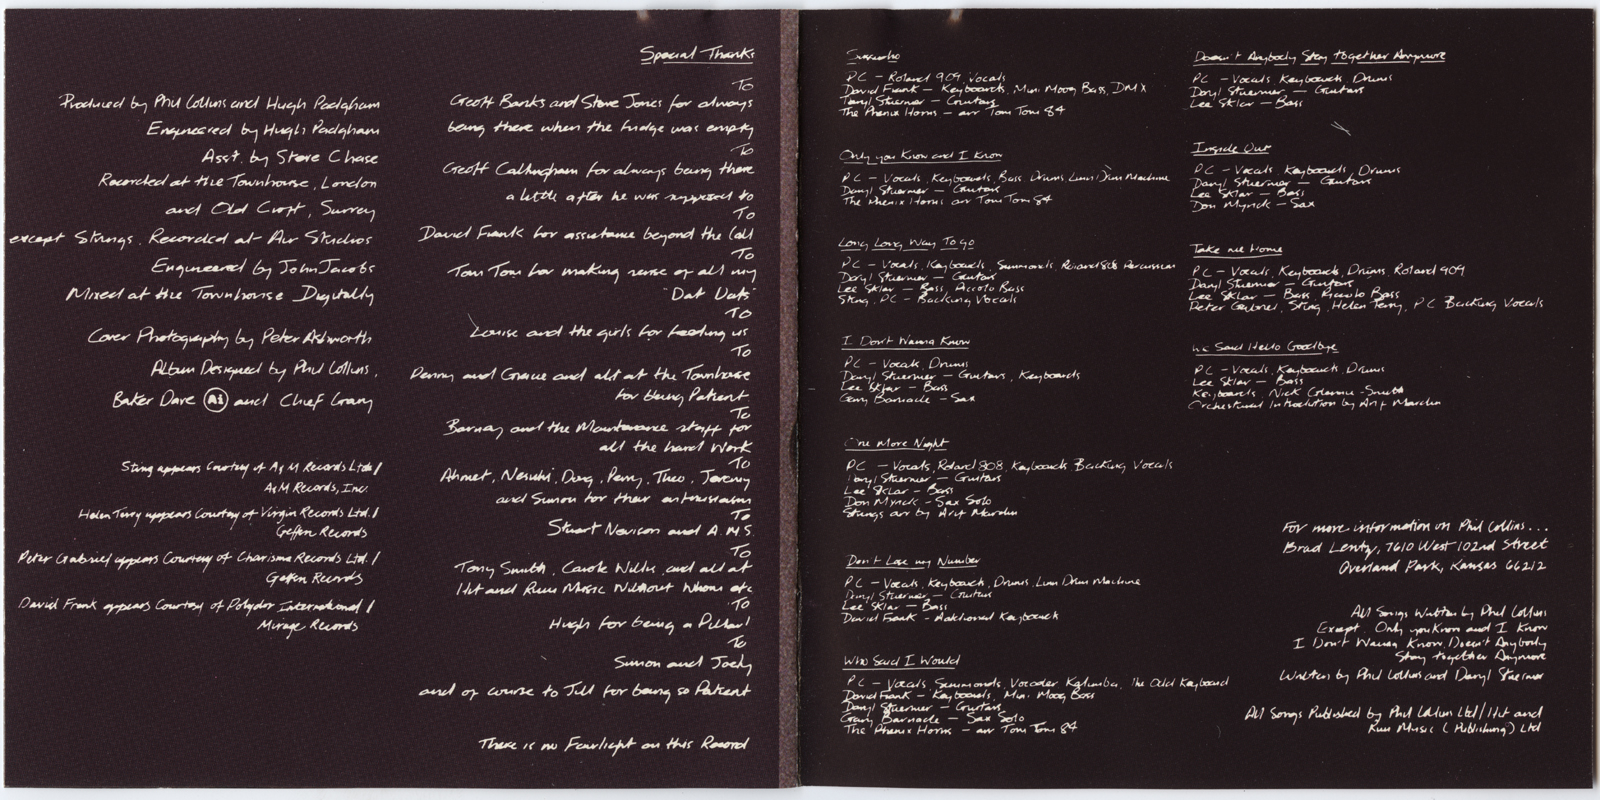 Produced by Phil Collins and Hugh Padgham
Engineered by Hugh Padgham
Asst. by Steve Chase
Recorded at the Townhouse, London
and Old Croft, Surrey
except Strings, Recorded at Air Studios
Engineered by John Jacobs
Mixed at the Townhouse Digitally
Cover Photography by Peter Ashworth
Album Designed by Phil Collins,
Baker Dave Ai and Chief Gary
Sting appears Courtesy of A&M Records Ltd/
A&M Records, Inc.
Helen Terry appears Courtesy of Virgin Records Ltd./
Geffen Records
Peter Gabriel appears Courtesy of Charisma Records Ltd./
Geffen Records
David Frank appears Courtesy of Polydor International/
Mirage Records
Special Thanks
To
Geoff Banks and Steve Jones for always
being there when the fudge was empty
To
Geoff Callingham for always being there
a little after he was supposed to
To
David Frank for assistance beyond the Call
To
Tom Tom for making sense of all my
"Dat Dats"
To
Louise and the girls for feeding us
To
Penny and Gracie and all at the Townhouse
for being Patient
To
Barney and the Maintenance staff for
all the hard work
To
Ahmet, Nesuhi, Doug, Perry, Theo, Jeremy
and Simon for their enthusiasm
To
Stuart Nevison and A.M.S.
To
Tony Smith, Carole Willis, and all at
Hit and Run Music Without Whom etc
To
Hugh for being a Pillar!
To
Simon and Joely
and of course to Jill for being so Patient
There is no Fairlight on this Record
Sussudio
PC – Roland 909, Vocals
David Frank – Keyboards, Mini Moog Bass, DMX
Daryl Stuermer – Guitars
The Phenix Horns – arr Tom Tom 84
Only you Know and I Know
PC – Vocals, Keyboards, Bass Drums, Linn Drum Machine
Daryl Stuermer – Guitars
The Phenix Horns arr Tom Tom 84
Long Long Way To go
PC – Vocals, Keyboards, Simmonds, Roland 808 Percussion
Daryl Stuermer – Guitars
Lee Sklar – Bass, Piccolo Bass
Sting, PC – Backing Vocals
I Don't Wanna Know
PC – Vocals, Drums
Daryl Stuermer – Guitars, Keyboards
Lee Sklar – Bass
Gary Barnacle – Sax
One More Night
PC – Vocals, Roland 808, Keyboards Backing Vocals
Daryl Stuermer – Guitars
Lee Sklar – Bass
Don Myrick – Sax Solo
Strings arr by Arif Mardin
Don't Lose my Number
PC – Vocals, Keyboards, Drums, Linn Drum Machine
Daryl Stuermer – Guitars
Lee Sklar – Bass
David Frank – Additional Keyboards
Who Said I Would
PC – Vocals, Simmonds, Vocoder, Kalimba, The Odd Keyboard
David Frank – Keyboards, Mini Moog Bass
Daryl Stuermer – Guitars
Gary Barnacle – Sax Solo
The Phenix Horns – arr Tom Tom 84
Doesn't Anybody Stay together Anymore
PC – Vocals Keyboards, Drums
Daryl Stuermer – Guitars
Lee Sklar – Bass
Inside Out
PC – Vocals, Keyboards, Drums
Daryl Stuermer – Guitars
Lee Sklar – Bass
Don Myrick – Sax
Take me Home
PC – Vocals, Keyboards, Drums, Roland 909
Daryl Stuermer – Guitars
Lee Sklar – Bass, Piccolo Bass
Peter Gabriel, Sting, Helen Terry, PC Backing Vocals
We Said Hello Goodbye
PC – Vocals, Keyboards, Drums
Lee Sklar – Bass
Keyboards, Nick Glennie-Smith
Orchestral Introduction by Arif Mardin
For more information on Phil Collins...
Brad Lentz, 7610 West 102nd Street
Overland Park, Kansas 66212
All Songs Written by Phil Collins
Except Only you Know and I Know
I Don't Wanna Know, Doesn't Anybody
Stay together Anymore
Written by Phil Collins and Daryl Stuermer
All Songs Published by Phil Collins Ltd/Hit and
Run Music (Publishing) Ltd